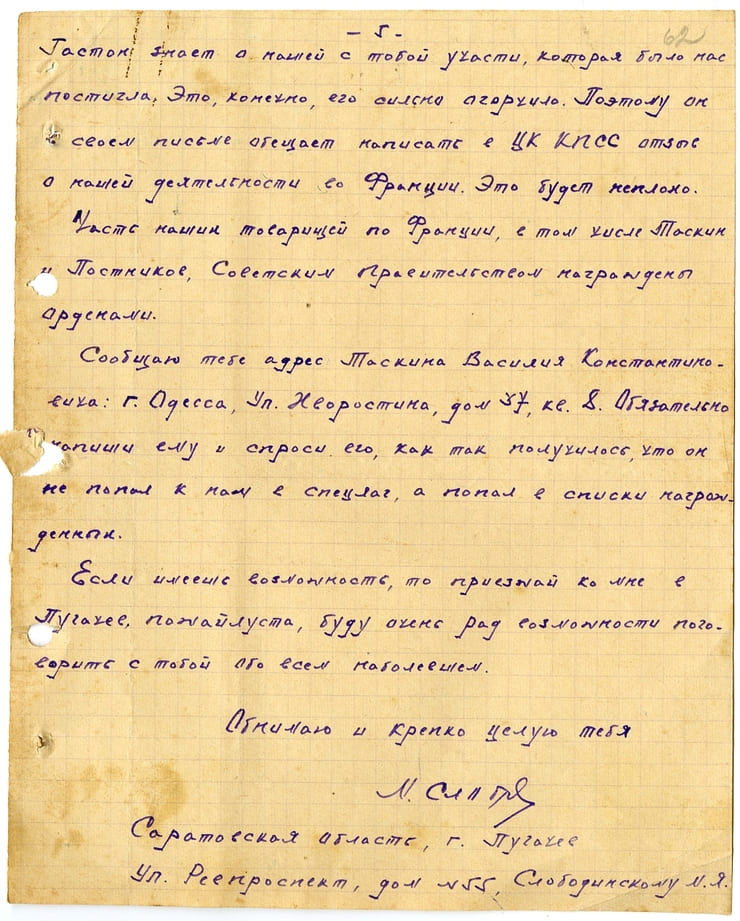 - 5 -
62
Гастон знает о нашей с тобой участи, которая было нас
постигла. Это, конечно, его сильно огорчило. Поэтому он
в своем письме обещает написать в ЦК КПСС отзыв
о нашей деятельности во Франции. Это будет неплохо.
Часть наших товарищей по Франции, в том числе Таскин
и Постников, Советским Правительством награждены
орденами.
Сообщаю тебе адрес Таскина Василия Константино-
вича: г. Одесса, Ул. Хворостина, дом кв. 8. Обязательно
напиши ему и спроси его, как так получилось, что он
не попал к нам в спецлаг, а попал в списки награж-
денных.
Если имеешь возможность, то приезжай ко мне в
Пугачев, пожайлуста, буду очень рад возможности пого-
ворить с тобой обо всем наболевшем.
Обнимаю и крепко целую тебя
М.
Саратовская область, г. Пугачев
Ул. Ревпроспект, дом №55, Слободинскому М.Я.